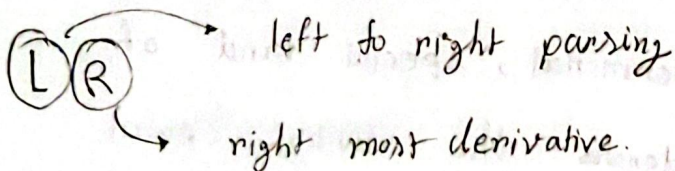 L R
left to right parsing
right most derivative.